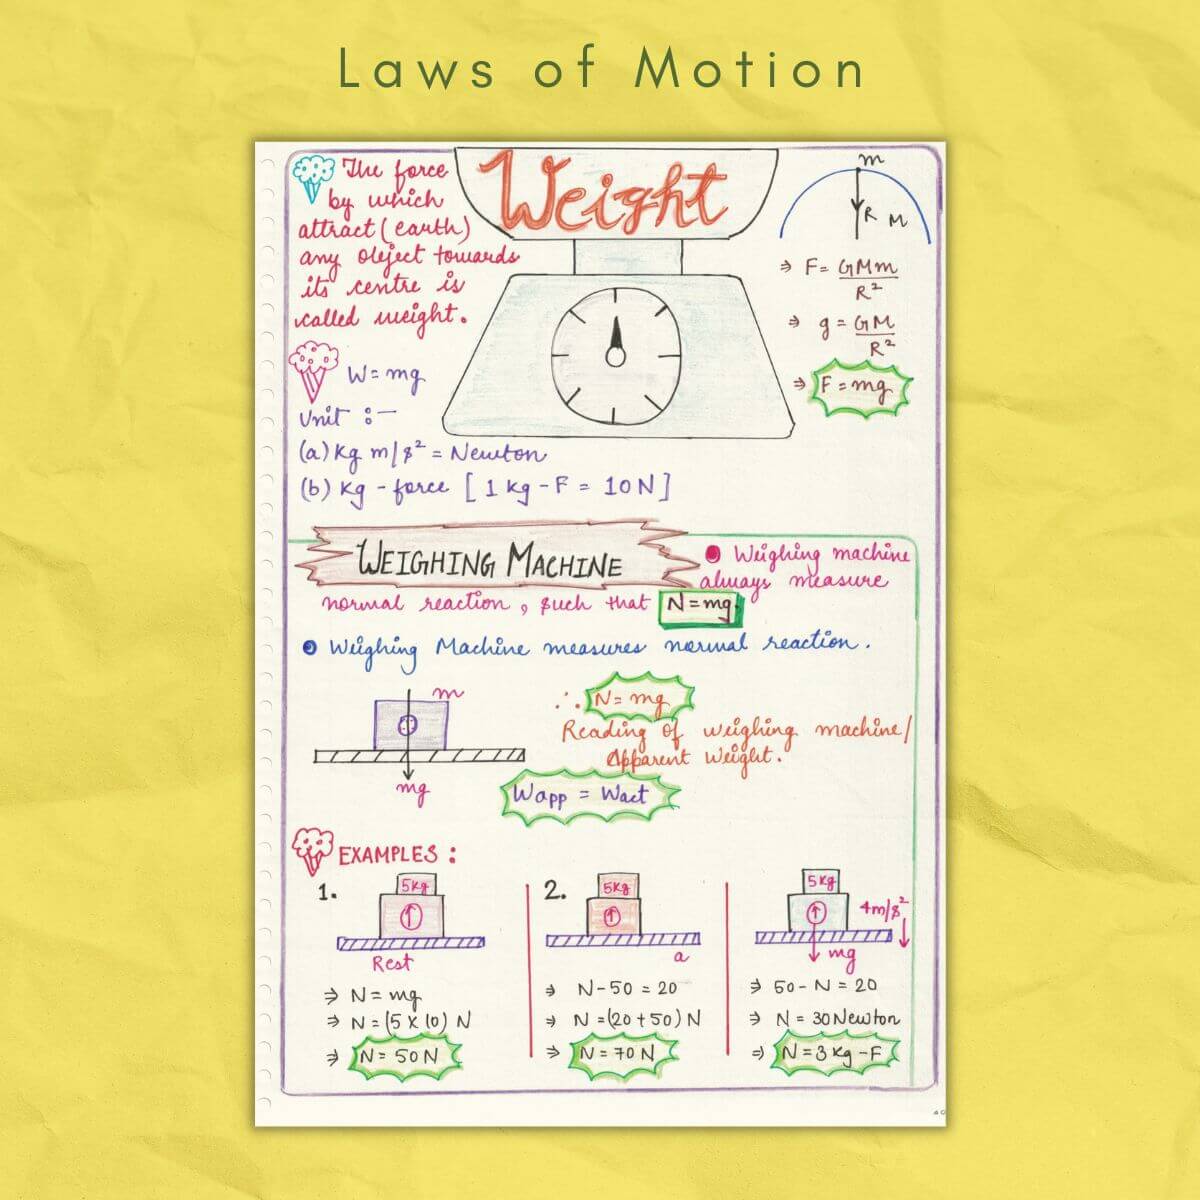 Laws of Motion
Weight
The force
by which
attract (earth)
any object towards
its centre is
called weight.
W = mg
Unit :-
(a) Kg m/s² = Newton
(b) Kg - force [ 1 kg - F = 10 N ]
m
R M
⇒ F = GMm
R²
⇒ g = GM
R²
⇒ F = mg
WEIGHING MACHINE
Weighing machine
always measure
normal reaction, such that N = mg.
Weighing Machine measures normal reaction.
m
mg
∴ N = mg
Reading of weighing machine/
Apparent weight.
Wapp = Wact
EXAMPLES :
1.
5kg
Rest
⇒ N = mg
⇒ N = (5 X 10) N
⇒ N = 50 N
2.
5kg
a
⇒ N - 50 = 20
⇒ N = (20 + 50) N
⇒ N = 70 N
5kg
4m/s²
mg
⇒ 50 - N = 20
⇒ N = 30 Newton
⇒ N = 3 Kg - F